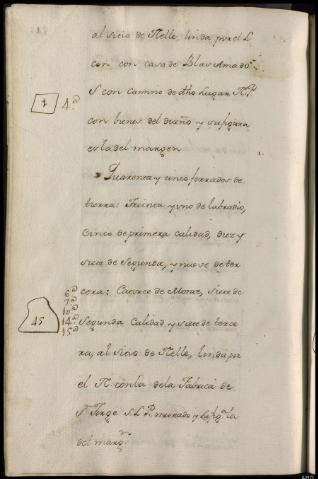 al sitio de Nelle, linda por el L
con con casa de Blas Amado
S con camino de dho Lugar N.P.
1 4.ª
con bienes del dueño y su figura
es la del margen
Quarenta y cinco ferrados de
tierra: Treinta y uno de labradio,
cinco de primera calidad, diez y
siete de Segunda, y nueve de ter
6ª cera: Catorce de Monte, siete de
7ª
10ª
45 14ª Segunda Calidad y siete de terce
15ª
ra, al sitio de Nelle, linda por
el N con la de la Fabrica de
S.n Jorge S. L. P. murado y la fig.ª la
del marg.n